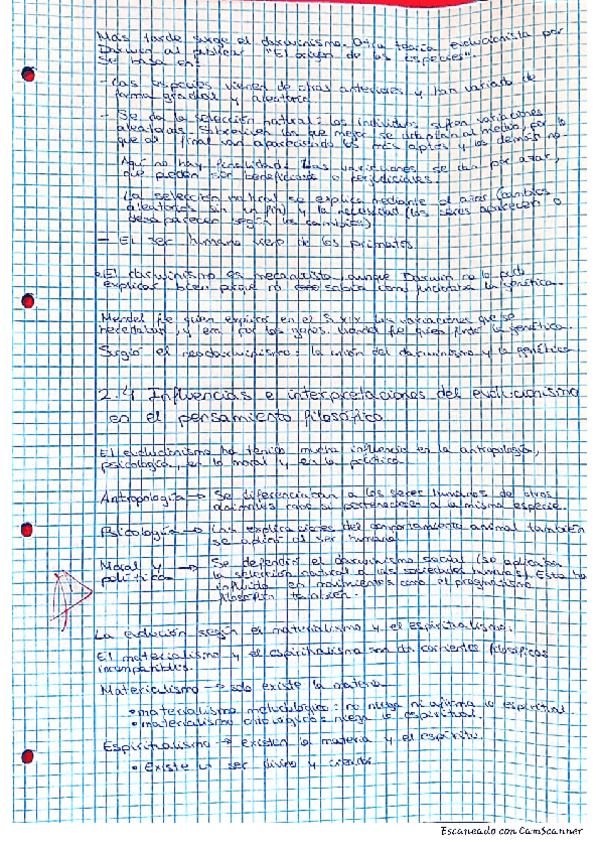 Más tarde surge el darwinismo. Otra teoría evolucionista por
Darwin al publicar "El origen de las especies".
Se basa en:
- Las especies vienen de otras anteriores y han variado de
forma gradual y aleatoria
- Se da la selección natural: los individuos sufren variaciones
aleatorias. Sobreviven los que mejor se adaptan al medio, por lo
que al final van apareciendo los más aptos y los demás no.
Aquí no hay finalidad. Las variaciones se dan por azar,
que pueden ser beneficiosas o perjudiciales.
La selección natural se explica mediante el azar (cambios
aleatorios sin un fin) y la necesidad (los seres aparecen o
desaparecen según los cambios)
- El ser humano viene de los primates
El darwinismo es mecanicista, aunque Darwin no lo pudo
explicar bien porque no sabía como funcionaba la genética.
Mendel fue quien explicó en el S.XIX las variaciones que se
heredaban, y eran por los genes. Mendel fue quien fundó la genética.
Surgió el neodarwinismo: la unión del darwinismo y la genética
2.4 Influencias e interpretaciones del evolucionismo
en el pensamiento filosófico
El evolucionismo ha tenido mucha influencia en la antropología,
psicología, en la moral y en la política.
Antropología → Se diferenciaran a los seres humanos de otros
animales como si pertenecieran a la misma especie.
Psicología → Las explicaciones del comportamiento animal también
se aplican al ser humano
Moral y → Se defendió el darwinismo social (se aplicaba
política la selección natural a las sociedades humanas). Esto ha
influido en movimientos como el pragmatismo
filosófico también.
La evolución según el materialismo y el espiritualismo.
El materialismo y el espiritualismo son dos corrientes filosóficas
incompatibles.
Materialismo → solo existe la materia
• materialismo metodológico: no niega ni afirma lo espiritual
• materialismo ontológico: niega lo espiritual.
Espiritualismo → existen la materia y el espíritu.
• Existe un ser divino y creador
Escaneado con CamScanner